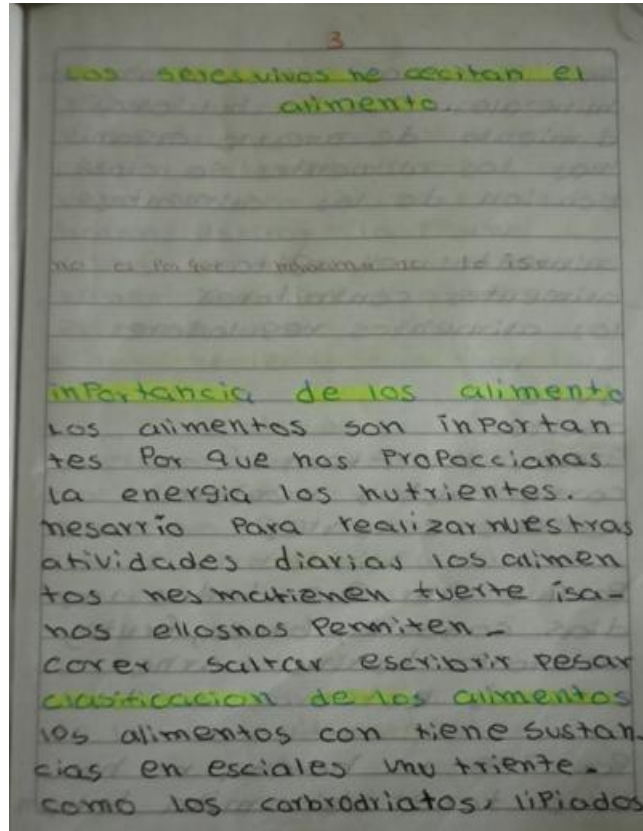 3
Los seres vivos ne cecitan el
alimento.
no es Por que
inPortancia de los alimento
Los alimentos son inPortan
tes Por que nos ProPoccianas
la energia los nutrientes.
nesarrio Para realizar nuestras
atividades diarias los alimen
tos nes matienen tuerte isa-
nos ellosnos Permiten-
corer saltar escribrir pesar
clasificacion de los alimentos
los alimentos con tiene sustan-
cias en esciales unu triente.
como los corbrodriatos, liPiados